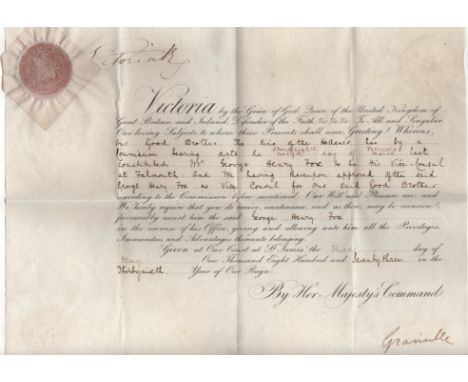 Victoria R
Victoria by the Grace of God, Queen of the United Kingdom of
Great Britain and Ireland, Defender of the Faith, &c, &c, &c, To All and Singular
Our loving Subjects to whom these Presents shall come, Greeting! Whereas,
Our Good Brother the King of the has by a
Commission bearing date the day of last
constituted Mr George Henry Fox to be His Vice-Consul
at Falmouth. And We having thereupon approved of the said
George Henry Fox as Vice Consul for Our said Good Brother
according to the Commission before mentioned. Our Will and Pleasure are, and
We hereby require that you do receive, countenance, and, as there may be occasion,
favourably assist him the said George Henry Fox
in the exercise of his Office, giving and allowing unto him all the Privileges,
Immunities and Advantages thereunto belonging.
Given at Our Court at St James' the Third day of
May One Thousand Eight Hundred and Seventythree in the
Thirtysixth Year of Our Reign.
By Her Majesty's Command.
Granville